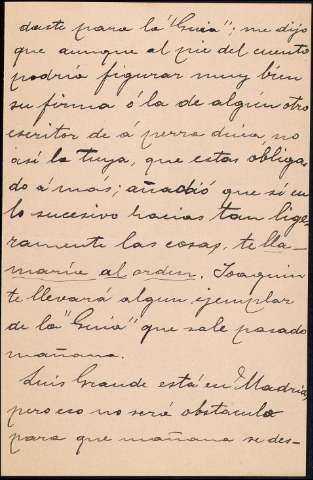 daste para la "Guia"; me dijo
que aunque al pie del cuento
podría figurar muy bien
su firma ó la de algún otro
escritor de á perra chica, no
así la tuya, que estas obliga-
do á mas; añadió que si en
lo sucesivo hacias tan lige-
ramente las cosas, te lla-
maría al orden. Joaquin
te llevará algun ejemplar
de la "Guia" que sale pasado
mañana.
Luis Grande está en Madrid,
pero eso no será obstáculo
para que mañana se des-